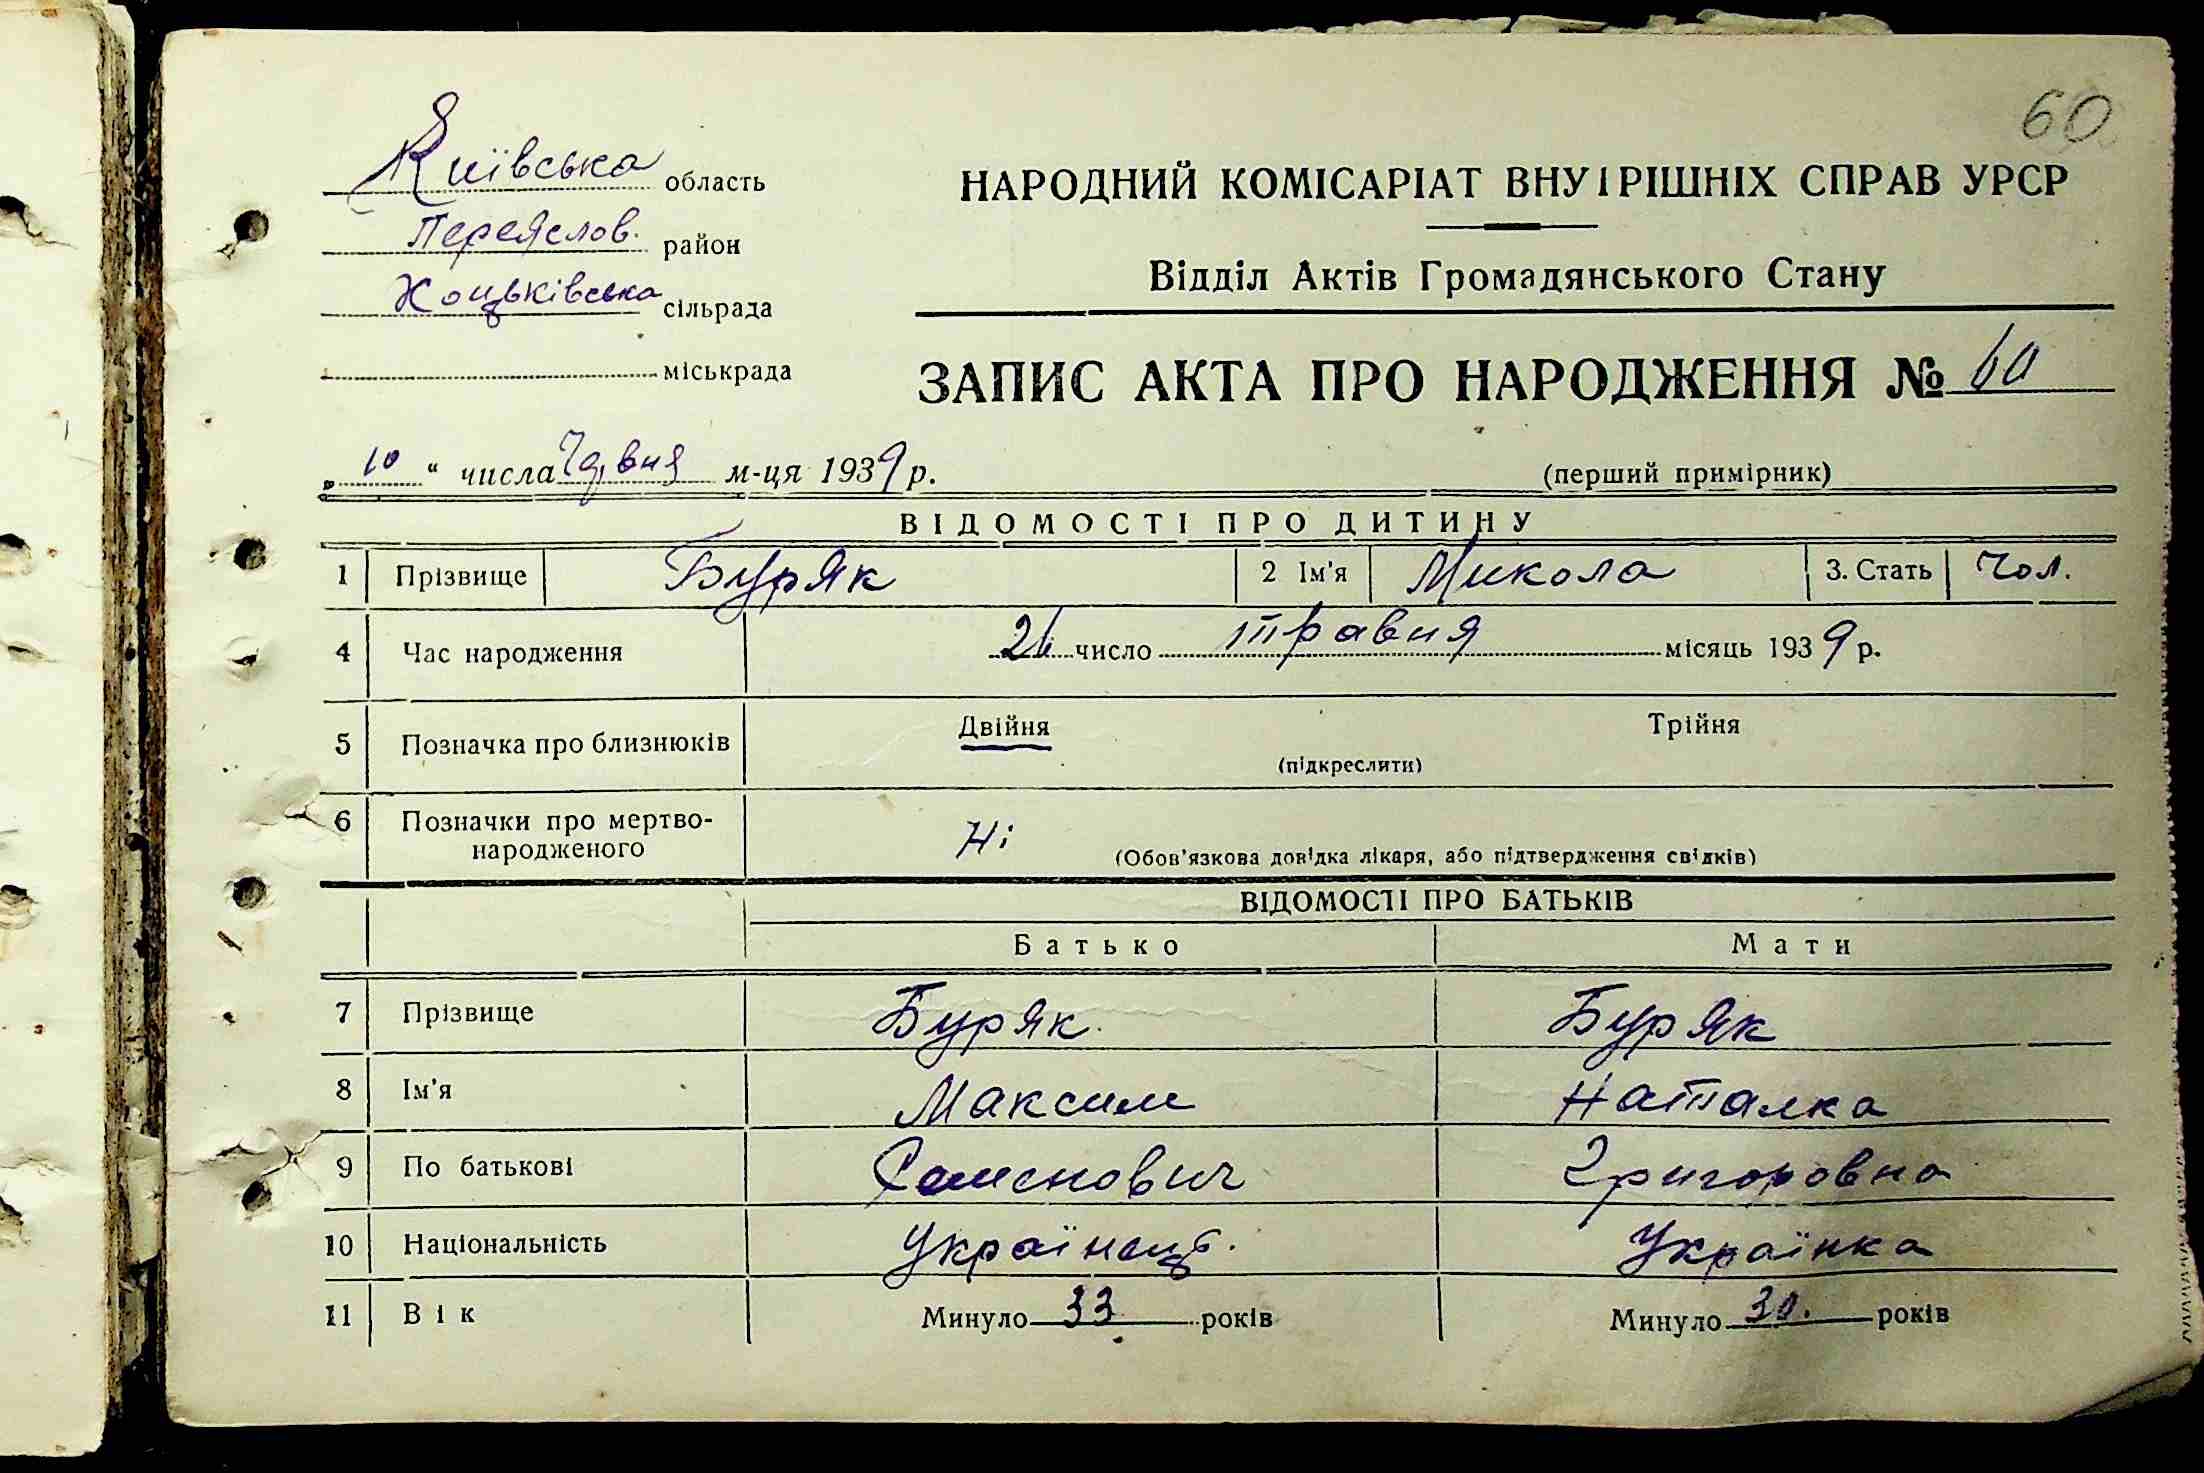 60
Київська область
Переяслов. район
Хоцьківська сільрада
міськрада
НАРОДНИЙ КОМІСАРІАТ ВНУТРІШНІХ СПРАВ УРСР
Відділ Актів Громадянського Стану
ЗАПИС АКТА ПРО НАРОДЖЕННЯ № 60
„10“ числа Червня м-ця 1939 р.
(перший примірник)
ВІДОМОСТІ ПРО ДИТИНУ
1 Прізвище Буряк 2 Ім'я Микола 3. Стать Чол.
4 Час народження число травня місяць 1939 р.
5 Позначка про близнюків Двійня Трійня
(підкреслити)
6 Позначки про мертво-
народженого Ні (Обов'язкова довідка лікаря, або підтвердження свідків)
ВІДОМОСТІ ПРО БАТЬКІВ
Батько Мати
7 Прізвище Буряк Буряк
8 Ім'я Максим Наталка
9 По батькові Семенович Григоровна
10 Національність Українець. Українка
11 Вік Минуло 33 років Минуло 30. років